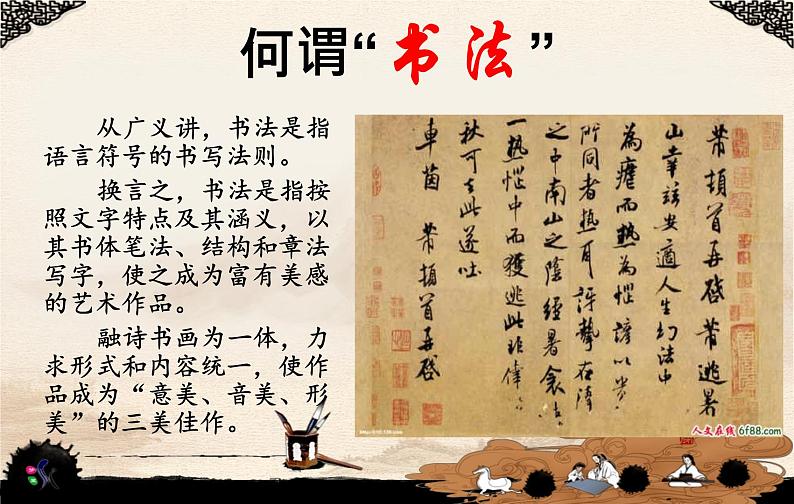 何谓“书法”
从广义讲，书法是指
语言符号的书写法则。
换言之，书法是指按
照文字特点及其涵义，以
其书体笔法、结构和章法
写字，使之成为富有美感
的艺术作品。
融诗书画为一体，力
求形式和内容统一，使作
品成为“意美、音美、形
美”的三美佳作。
芾頓首再啓芾逃暑
山幸兹安適人生幻法中
為瘧而熱為惱諺以貴
所同者熱耳訝摯在陸
之中南山之陰經暑衾
一熱惱中而獲逃此非幸
秋可去此遂吐
車茵 芾頓首再啓
人文在线 6f88.com